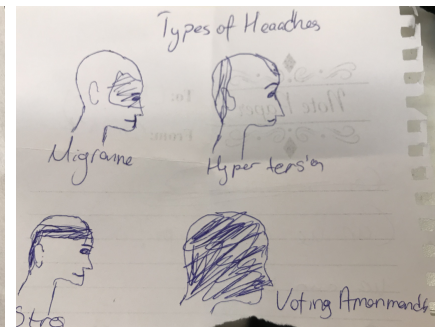 Types of Heaaches
Migraine
Hyper tension
Stres
Voting Amanmands